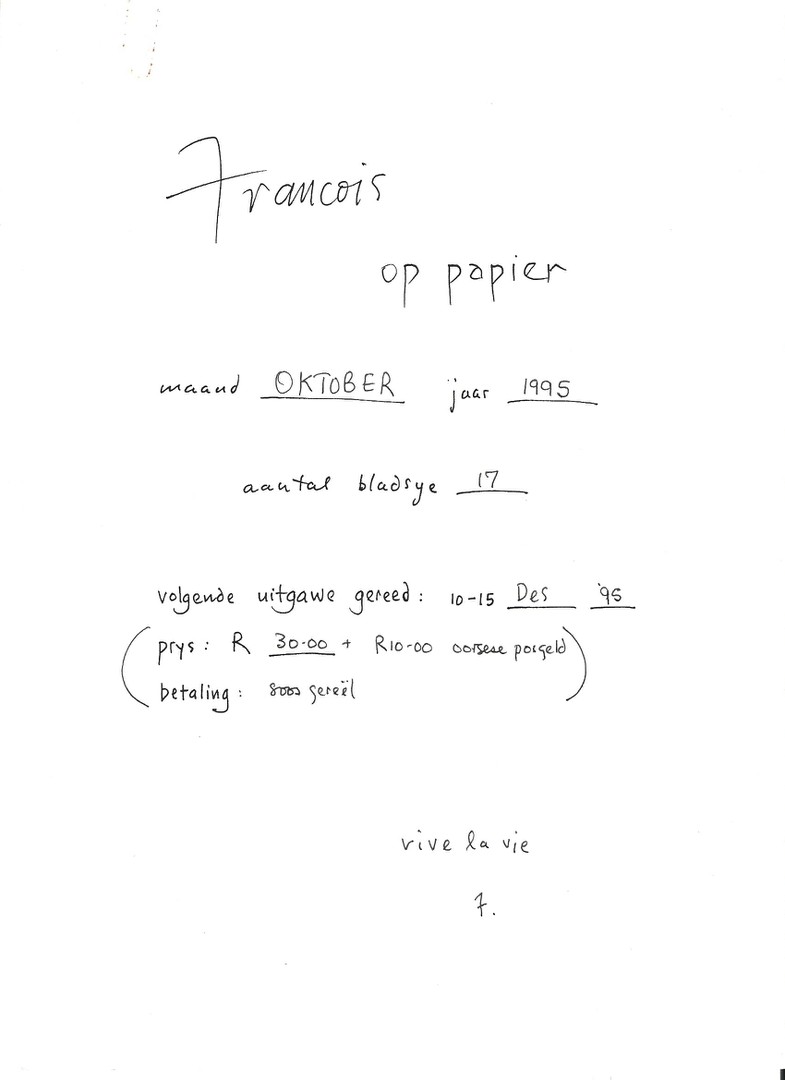 Francois
op papier
maand OKTOBER jaar 1995
aantal bladsye 17
volgende uitgawe gereed: 10-15 Des '95
(prys: R 30-00 + R10-00 oorsese posgeld)
betaling: soos gereël
vive la vie
F.